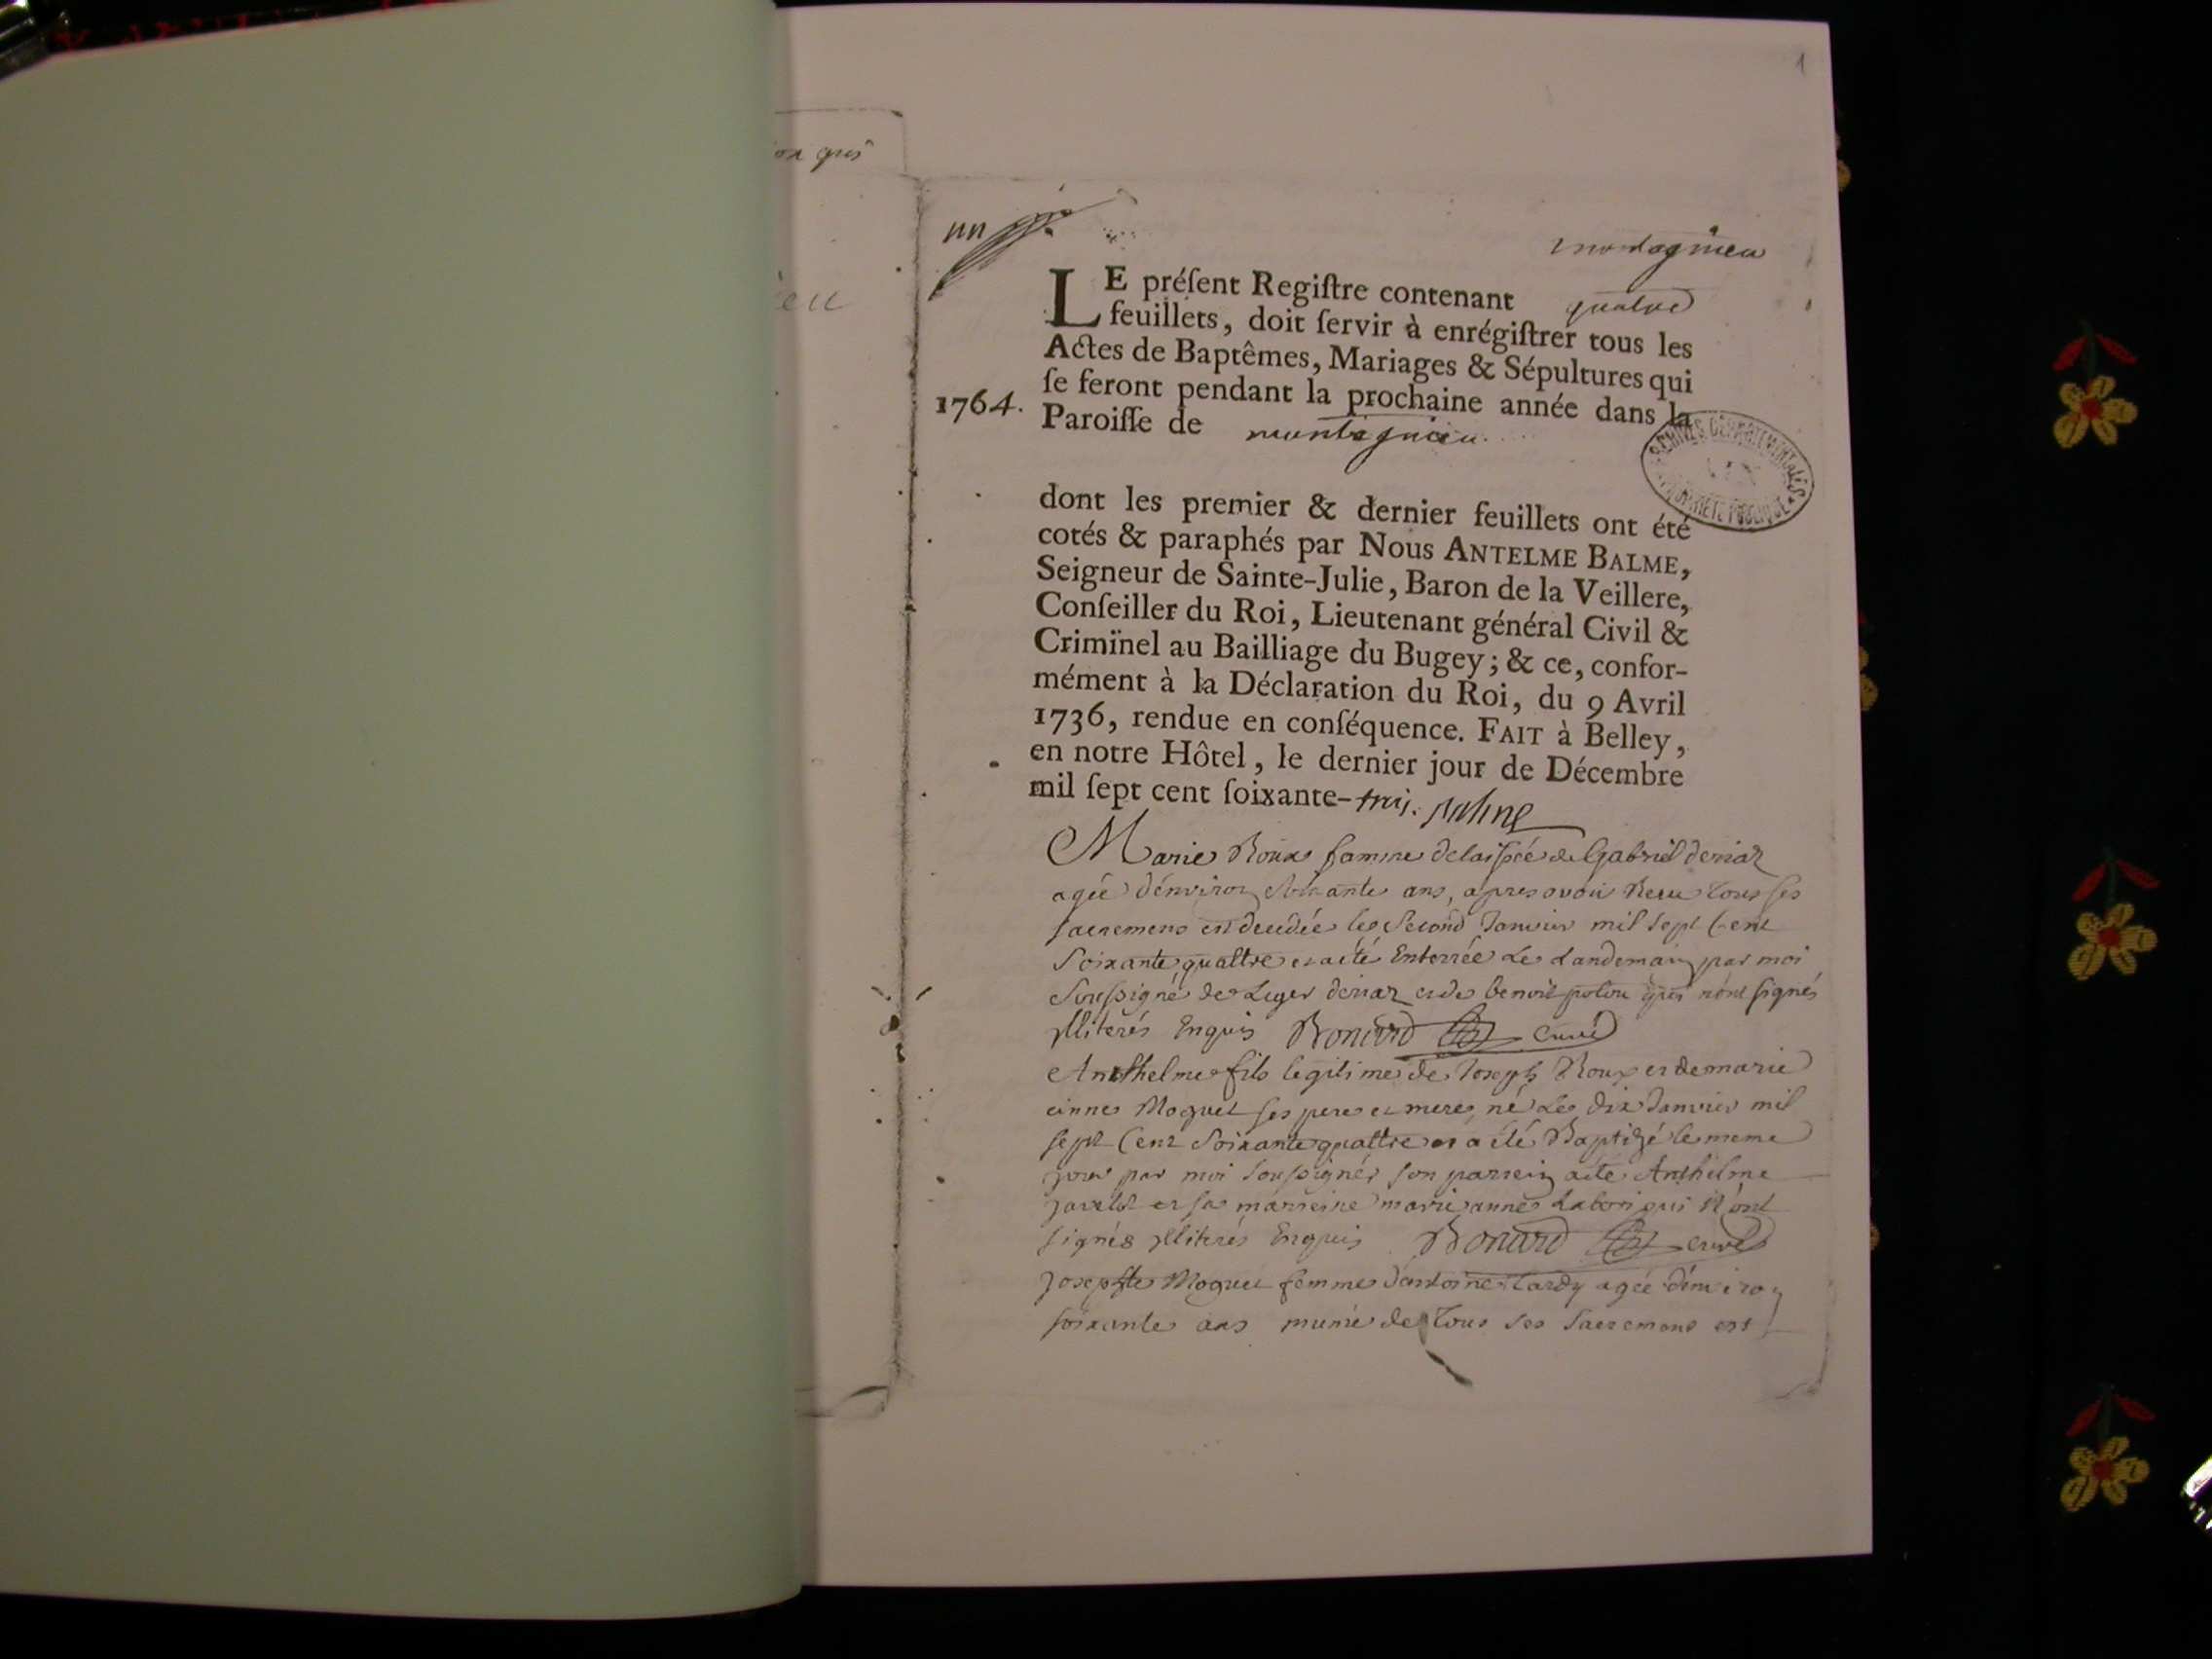 1
on qui
eu
un
montagnieu
LE préſent Regiſtre contenant quatre
feuillets, doit ſervir à enrégiſtrer tous les
Actes de Baptêmes, Mariages & Sépultures qui
ſe feront pendant la prochaine année dans la
1764. Paroiſſe de montagnieu.
ARCHIVES DÉPARTEMENTALES
AIN
PROPRIÉTÉ PUBLIQUE
dont les premier & dernier feuillets ont été
cotés & paraphés par Nous ANTELME BALME,
Seigneur de Sainte-Julie, Baron de la Veillere,
Conſeiller du Roi, Lieutenant général Civil &
Criminel au Bailliage du Bugey; & ce, confor-
mément à la Déclaration du Roi, du 9 Avril
1736, rendue en conſéquence. FAIT à Belley,
en notre Hôtel, le dernier jour de Décembre
mil ſept cent ſoixante-trois. Balme
Marie Roux famme delaissée de Gabriel deriaz
agée d'environ soixante ans, apres avoir Recu tous ses
sacremens est decedée le second Janvier mil sept Cent
Soixante quattre et a été Enterrée Le Landemain par moi
Soussigné de Leger deriaz et de benoit qui n'ont signés
ylliterés Enquis Bonard curé
Anthelme fils legitime de Joseph Roux et de marie
anne Moguet ses pere et mere, né Le dix Janvier mil
sept Cent Soixante quattre et a été Baptizé le meme
jour par moi soussigné, son parrein a été Anthelme
et sa marreine marie anne qui N'ont
signés ylliterés Enquis Bonard curé
Josephte Moguet femme d'antoine Tardy agée d'environ
soixante ans munie de Tous ses sacremens est